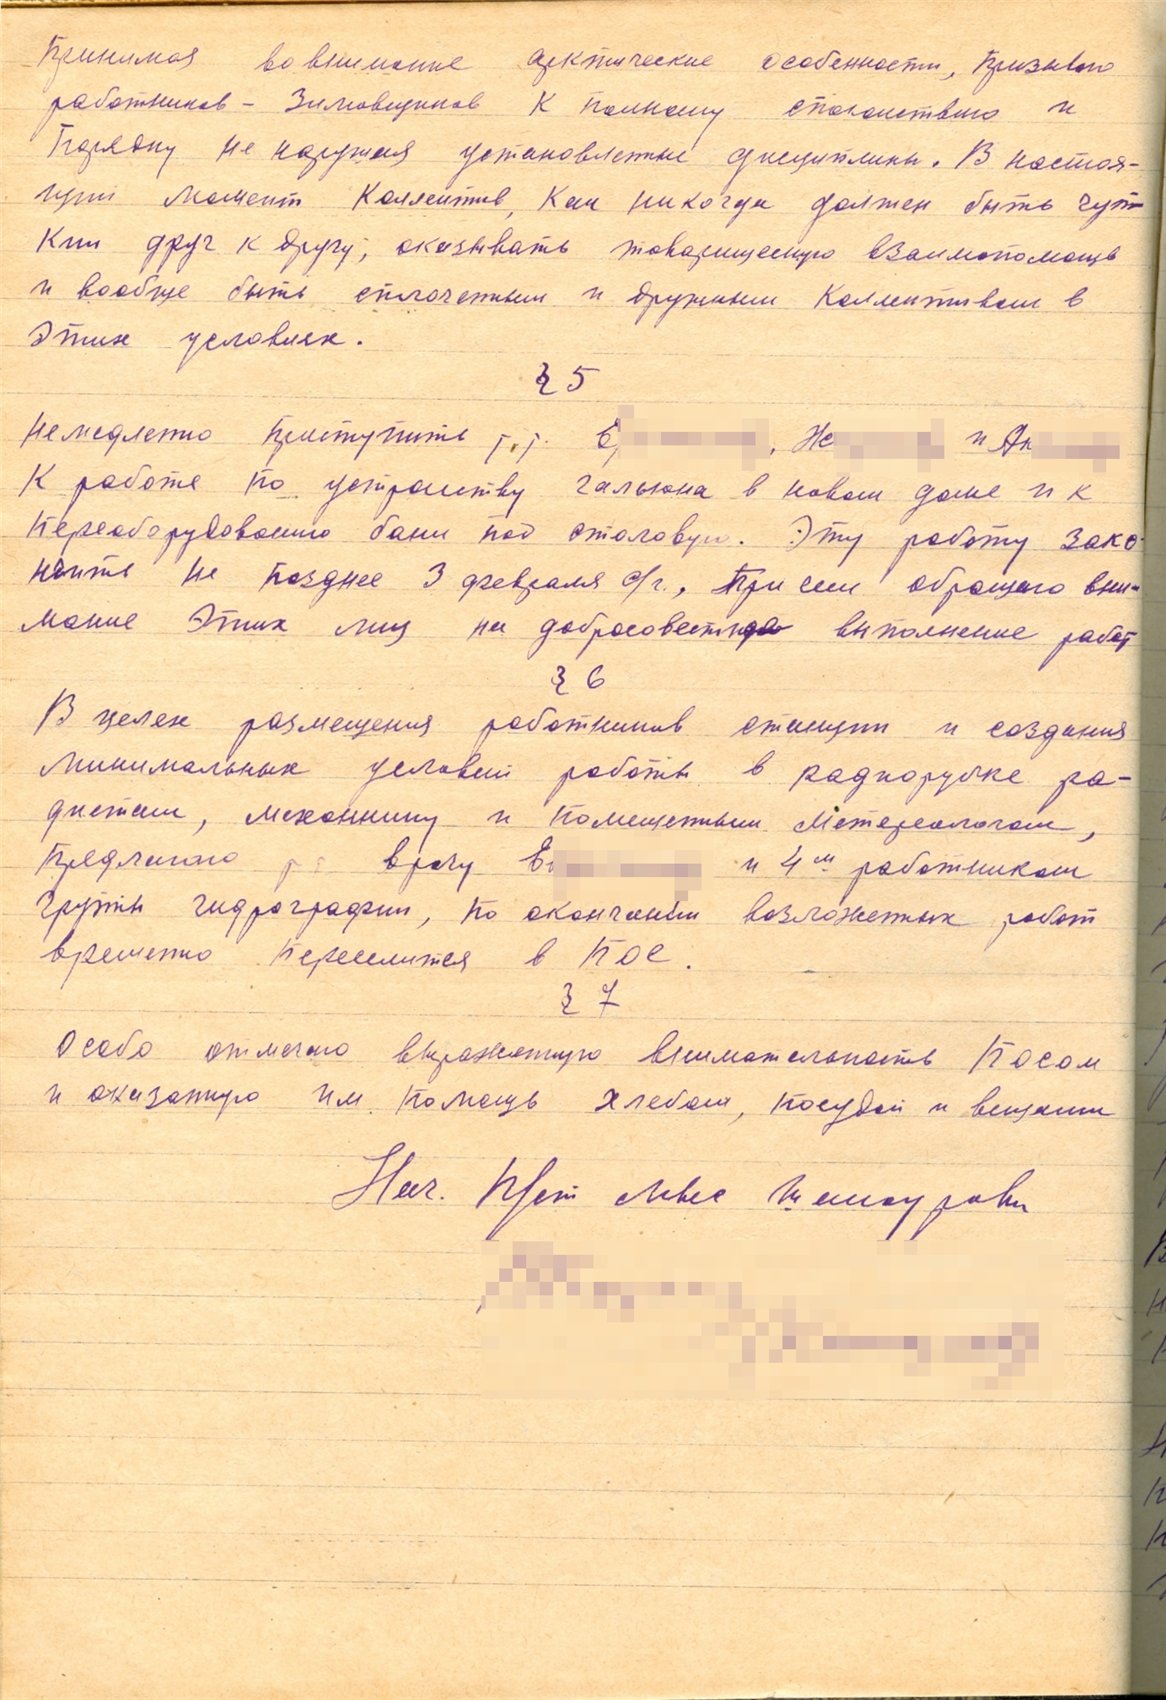 Принимая во внимание арктические особенности, призываю
работников - зимовщиков к полному спокойствию и
порядку не нарушая установленные дисциплины. В настоя-
щий момент коллектив, как никогда должен быть чут-
ким друг к другу, оказывать товарищескую взаимопомощь
и вообще быть сплоченным и дружным коллективом в
этих условиях.
§ 5
Немедленно приступить т.т. и
К работе по устройству гальюна в новом доме и к
переоборудованию бани под столовую. Эту работу зако-
нчить не позднее 3 февраля с/г., При сем обращаю вни-
мание этих лиц на выполнение работ
§ 6
В целях размещения работников станции и создания
минимальных условий работы в радиорубке ра-
дистам, механнику и помещенным метереологам,
Предлагаю врачу и 4м работникам
группы гидрографии, по окончании возложенных работ
временно переселится в ПОС.
§ 7
Особо отмечаю выраженную внимательность ПОСом
и оказанную им помощь хлебом, посудой и вещами
Нач. п/ст мыс